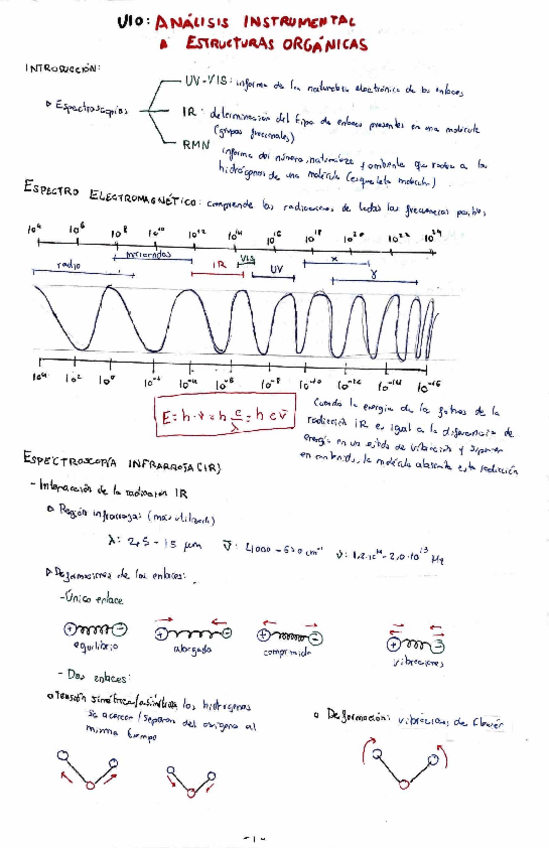 U10: ANÁLISIS INSTRUMENTAL
ESTRUCTURAS ORGÁNICAS
INTRODUCCIÓN:
UV-VIS: informa de la naturaleza electrónica de los enlaces
Espectroscopías
IR: determinación del tipo de enlaces presentes en una molécula
(grupos funcionales)
RMN informa del número, naturaleza y ambiente que rodea a los
hidrógenos de una molécula (esqueleto molecular)
ESPECTRO ELECTROMAGNÉTICO: comprende las radiaciones de todas las frecuencias posibles
10⁴ 10⁶ 10⁸ 10¹⁰ 10¹² 10¹⁴ 10¹⁶ 10¹⁸ 10²⁰ 10²² 10²⁴
radio microondas IR VIS UV X γ
10⁴ 10² 10⁰ 10⁻² 10⁻⁴ 10⁻⁶ 10⁻⁸ 10⁻¹⁰ 10⁻¹² 10⁻¹⁴ 10⁻¹⁶
E = h·ν = h c/λ = h c ν̄
Cuando la energía de los fotones de la
radiación IR es igual a la diferencia de
energía en un estado de vibración y
la molécula absorbe esta radiación
ESPECTROSCOPÍA INFRARROJA (IR)
- Interacción de la radiación IR
Región infrarroja: (más utilizada)
λ: 2,5 - 15 μm ν̄: 4000 - cm⁻¹ ν: 1,2·10¹⁴ - 2,0·10¹³ Hz
Deformaciones de los enlaces:
- Único enlace
equilibrio alargado comprimido vibraciones
- Dos enlaces:
Tensión simétrica/asimétrica los hidrógenos
se acercan/separan del oxígeno al
mismo tiempo
Deformación: vibraciones de flexión
- 1 -